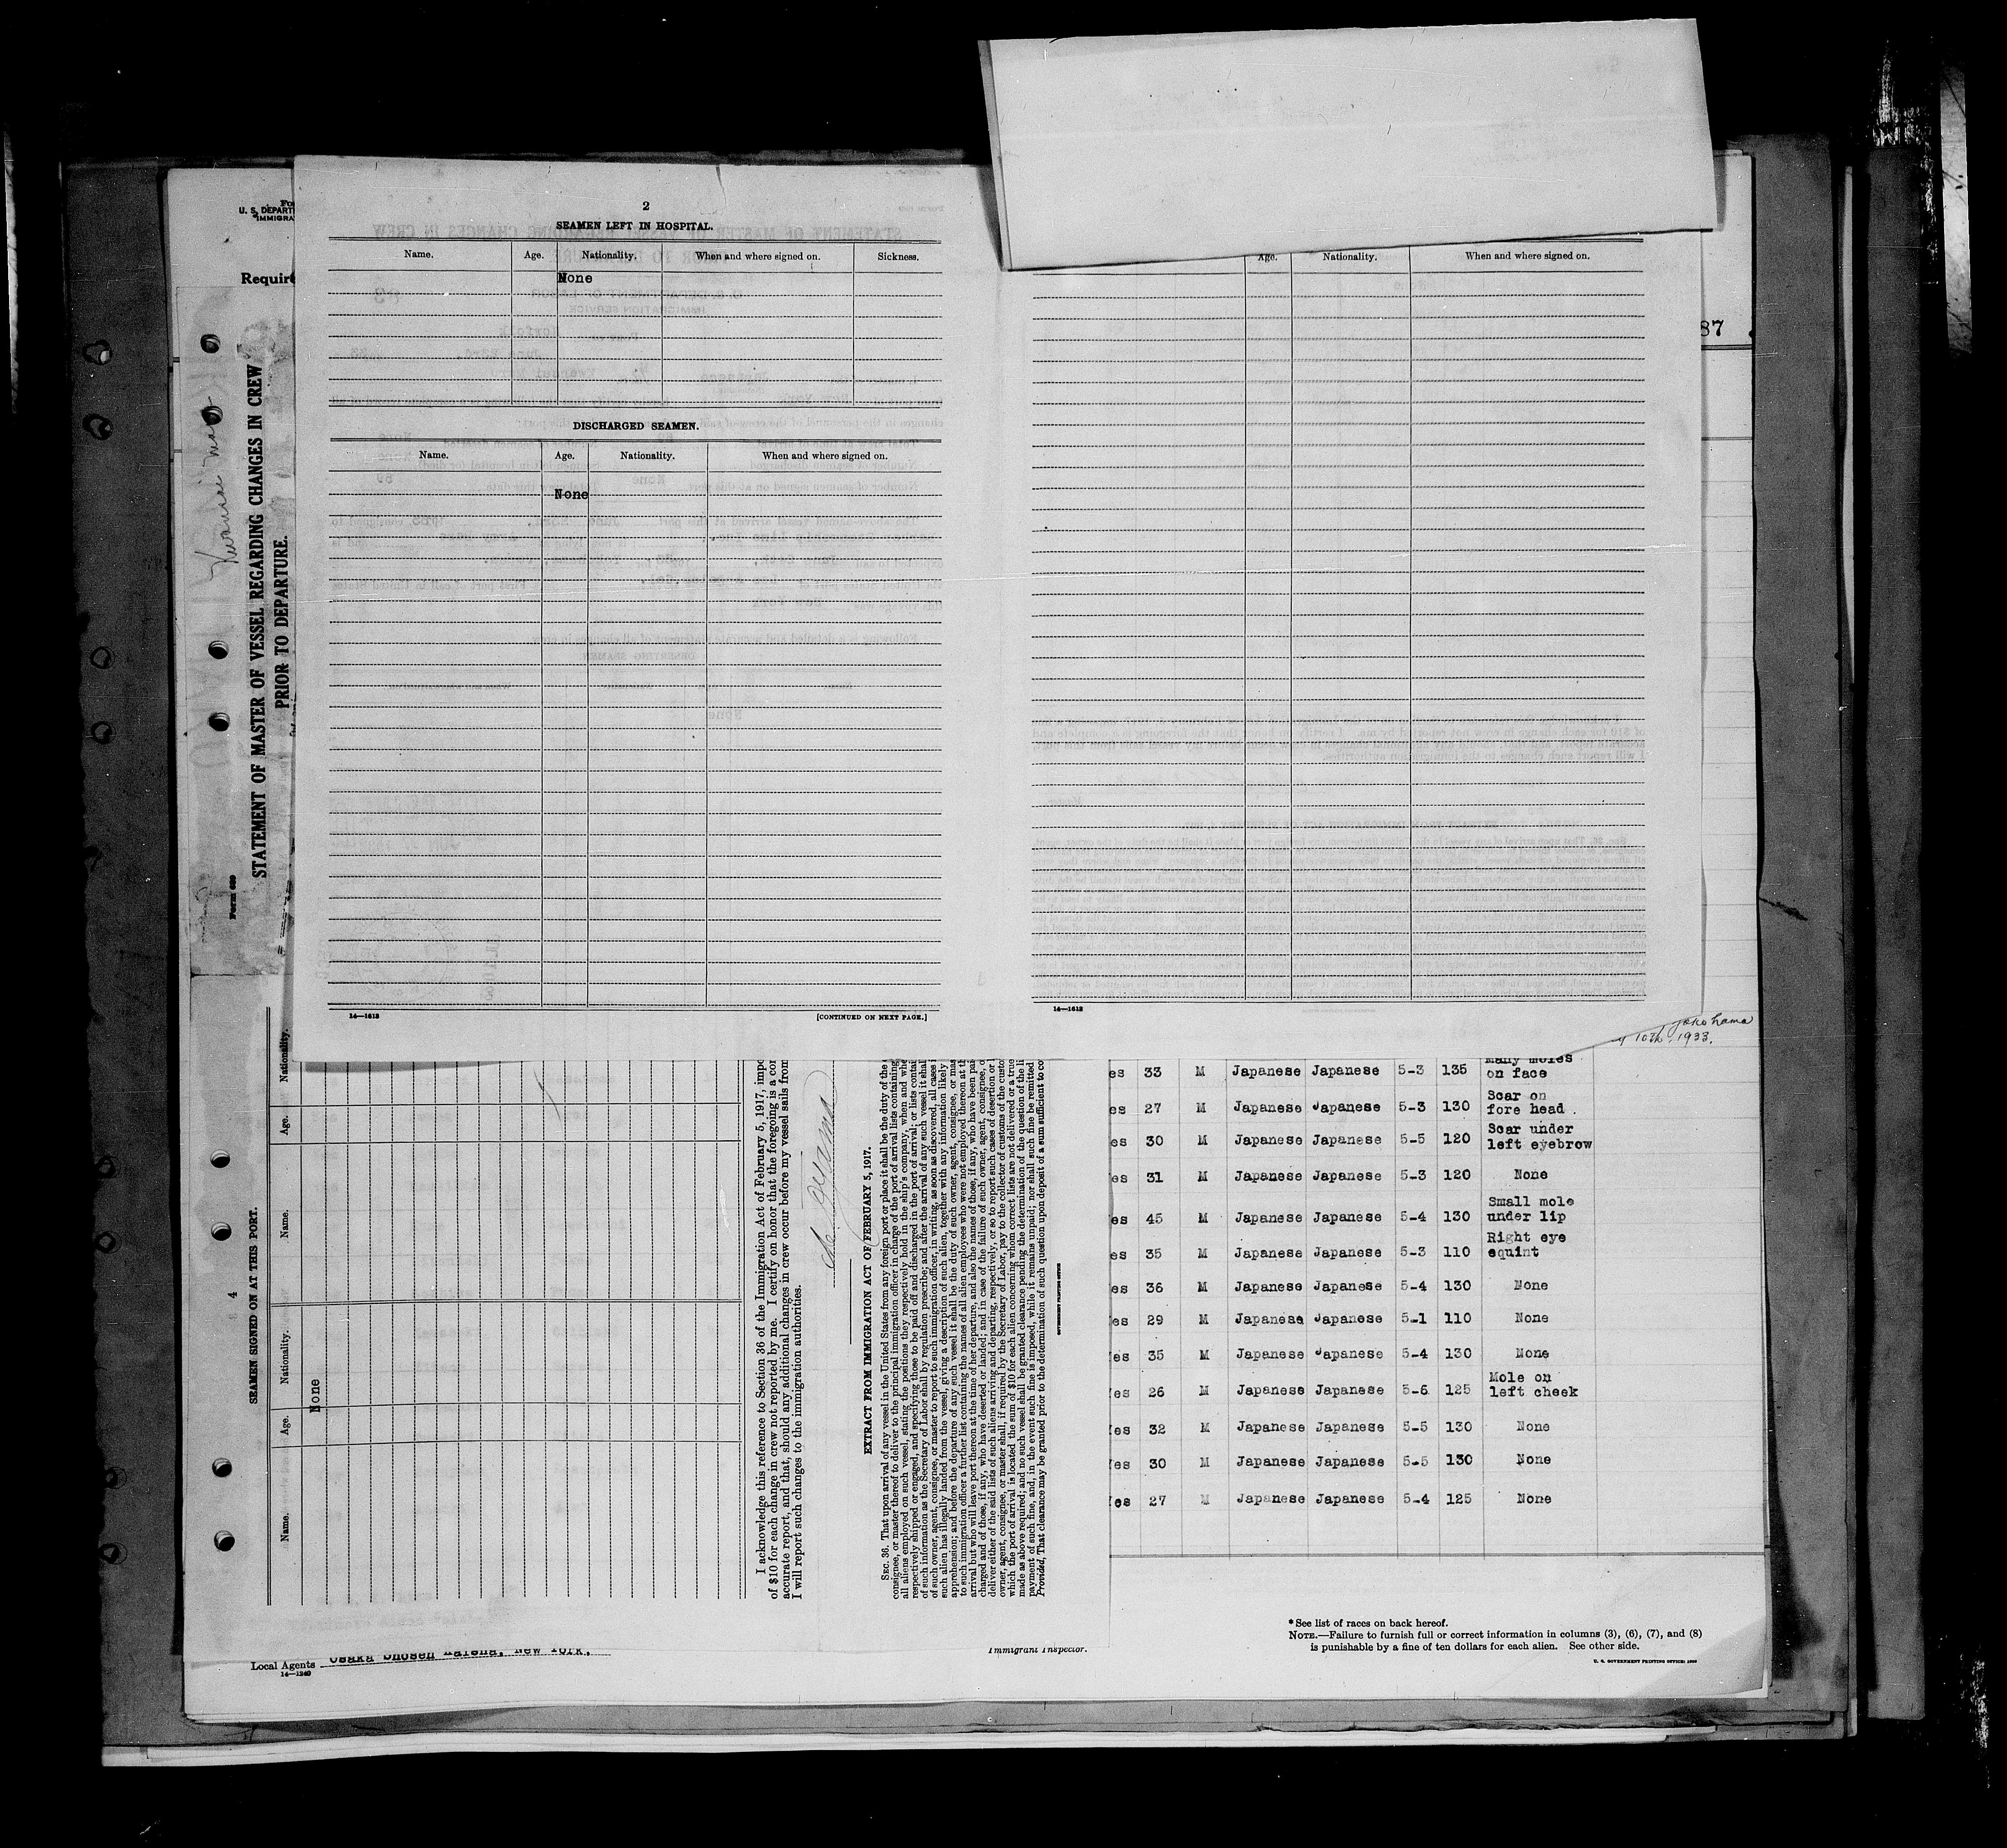 2
SEAMEN LEFT IN HOSPITAL.
Name. Age. Nationality. When and where signed on. Sickness.
None
DISCHARGED SEAMEN.
Name. Age. Nationality. When and where signed on.
None
14—1613
[CONTINUED ON NEXT PAGE.]
Age. Nationality. When and where signed on.
14—1613
U. S. DEPART
IMMIGRA
Require
87
Form 689
STATEMENT OF MASTER OF VESSEL REGARDING CHANGES IN CREW
PRIOR TO DEPARTURE.
Yokohama
10th, 1933.
4
SEAMEN SIGNED ON AT THIS PORT.
Name. Age. Nationality. Name. Age. Nationality.
None
I acknowledge this reference to Section 36 of the Immigration Act of February 5, 1917, impo
of $10 for each change in crew not reported by me. I certify on honor that the foregoing is a com
accurate report, and that, should any additional changes in crew occur before my vessel sails from
I will report such changes to the immigration authorities.
EXTRACT FROM IMMIGRATION ACT OF FEBRUARY 5, 1917.
SEC. 36. That upon arrival of any vessel in the United States from any foreign port or place it shall be the duty of the
consignee, or master thereof to deliver to the principal immigration officer in charge of the port of arrival lists containing
all aliens employed on such vessel, stating the positions they respectively hold in the ship's company, when and whe
respectively shipped or engaged, and specifying those to be paid off and discharged in the port of arrival; or lists contai
of such information as the Secretary of Labor shall by regulation prescribe; and after the arrival of any such vessel it shal
of such owner, agent, consignee, or master to report to such immigration officer, in writing, as soon as discovered, all cases i
such alien has illegally landed from the vessel, giving a description of such alien, together with any information likely
apprehension; and before the departure of any such vessel it shall be the duty of such owner, agent, consignee, or mas
to such immigration officer a further list containing the names of all alien employees who were not employed thereon at th
arrival but who will leave port thereon at the time of her departure, and also the names of those, if any, who have been pai
charged and of those, if any, who have deserted or landed; and in case of the failure of such owner, agent, consignee, o
deliver either of the said lists of such aliens arriving and departing, respectively, or so to report such cases of desertion or l
owner, agent, consignee, or master shall, if required by the Secretary of Labor, pay to the collector of customs of the custo
which the port of arrival is located the sum of $10 for each alien concerning whom correct lists are not delivered or a true
made as above required; and no such vessel shall be granted clearance pending the determination of the question of the li
payment of such fine, and, in the event such fine is imposed, while it remains unpaid; nor shall such fine be remitted
Provided, That clearance may be granted prior to the determination of such question upon deposit of a sum sufficient to co
GOVERNMENT PRINTING OFFICE
Many moles
es 33 M Japanese Japanese 5-3 135 on face
Scar on
es 27 M Japanese Japanese 5-3 130 fore head.
Scar under
es 30 M Japanese Japanese 5-5 120 left eyebrow
es 31 M Japanese Japanese 5-3 120 None
Small mole
es 45 M Japanese Japanese 5-4 130 under lip
Right eye
es 35 M Japanese Japanese 5-3 110 equint
es 36 M Japanese Japanese 5-4 130 None
es 29 M Japanese Japanese 5-1 110 None
es 35 M Japanese Japanese 5-4 130 None
Mole on
es 26 M Japanese Japanese 5-6 125 left cheek
es 32 M Japanese Japanese 5-5 130 None
es 30 M Japanese Japanese 5-5 130 None
es 27 M Japanese Japanese 5-4 125 None
*See list of races on back hereof.
NOTE.—Failure to furnish full or correct information in columns (3), (6), (7), and (8)
is punishable by a fine of ten dollars for each alien. See other side.
U. S. GOVERNMENT PRINTING OFFICE:
Local Agents Osaka Shosen Kaisha, New York.
14—1240
Immigrant Inspector.